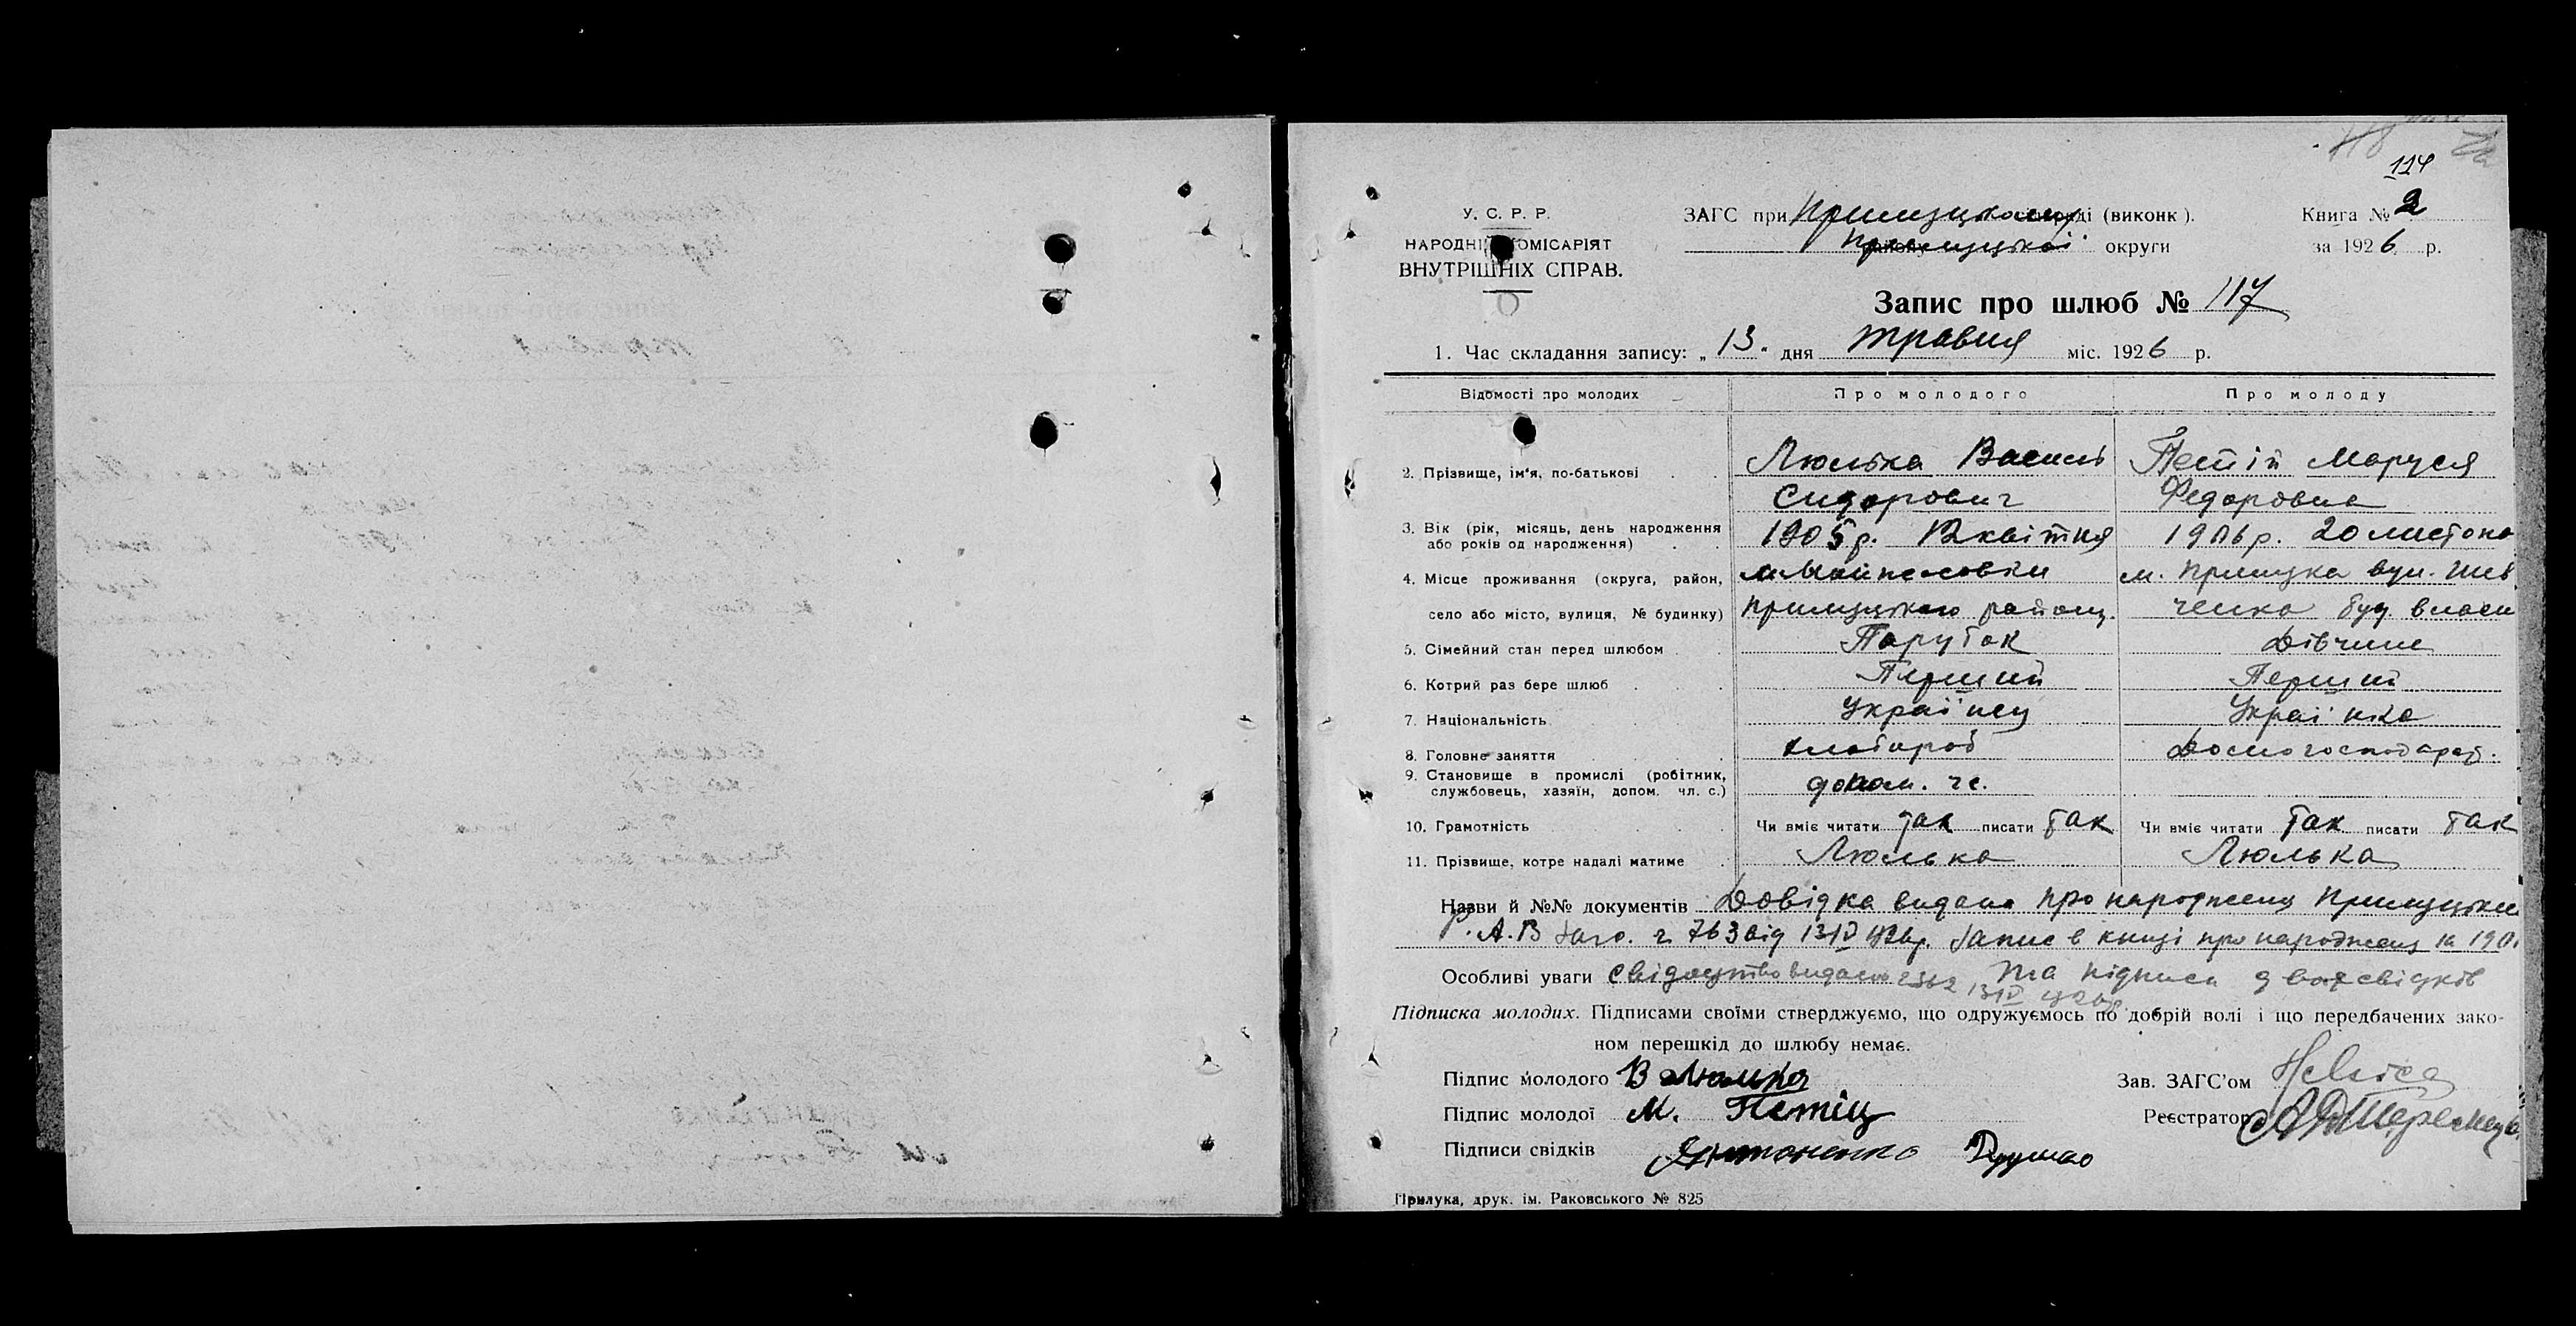 114
У. С. Р. Р.
НАРОДНІЙ КОМІСАРІЯТ
ВНУТРІШНІХ СПРАВ.
ЗАГС при Прилуцькому (виконк).
Прилуцької округи
Книга № 2
за 1926 р.
Запис про шлюб № 117
1. Час складання запису: „13“ дня травня міс. 1926 р.
Відомості про молодих Про молодого Про молоду
2. Прізвище, ім'я, по-батькові Люлька Василь Маруся
Сидорович Федоровна
3. Вік (рік, місяць, день народження 1905 р. 12 квітня 1906 р. 20 листопа
або років од народження)
4. Місце проживання (округа, район, м. Прилука вул. Шев
село або місто, вулиця, № будинку) Прилуцького району. ченка буд. власн
5. Сімейний стан перед шлюбом Парубок Дівчина
6. Котрий раз бере шлюб Перший Перший
7. Національність Українец Українка
8. Головне заняття хлібороб Домогосподарт.
9. Становище в промислі (робітник, допом. чс.
службовець, хазяїн, допом. чл. с.)
10. Грамотність Чи вміє читати так писати так Чи вміє читати так писати так
11. Прізвище, котре надалі матиме Люлька Люлька
Назви й №№ документів Довідка видана про народження Прилуцьки
Р. А. В 763 від запис в книзі про народжен 190
Особливі уваги свідоцтво видано та підписи двох свідків
Підписка молодих. Підписами своїми стверджуємо, що одружуємось по добрій волі і що передбачених зако-
ном перешкід до шлюбу немає.
Підпис молодого В Люлька
Зав. ЗАГС'ом
Підпис молодої М.
Реєстратор
Підписи свідків Антоненко
Прилука, друк. ім. Раковського № 825